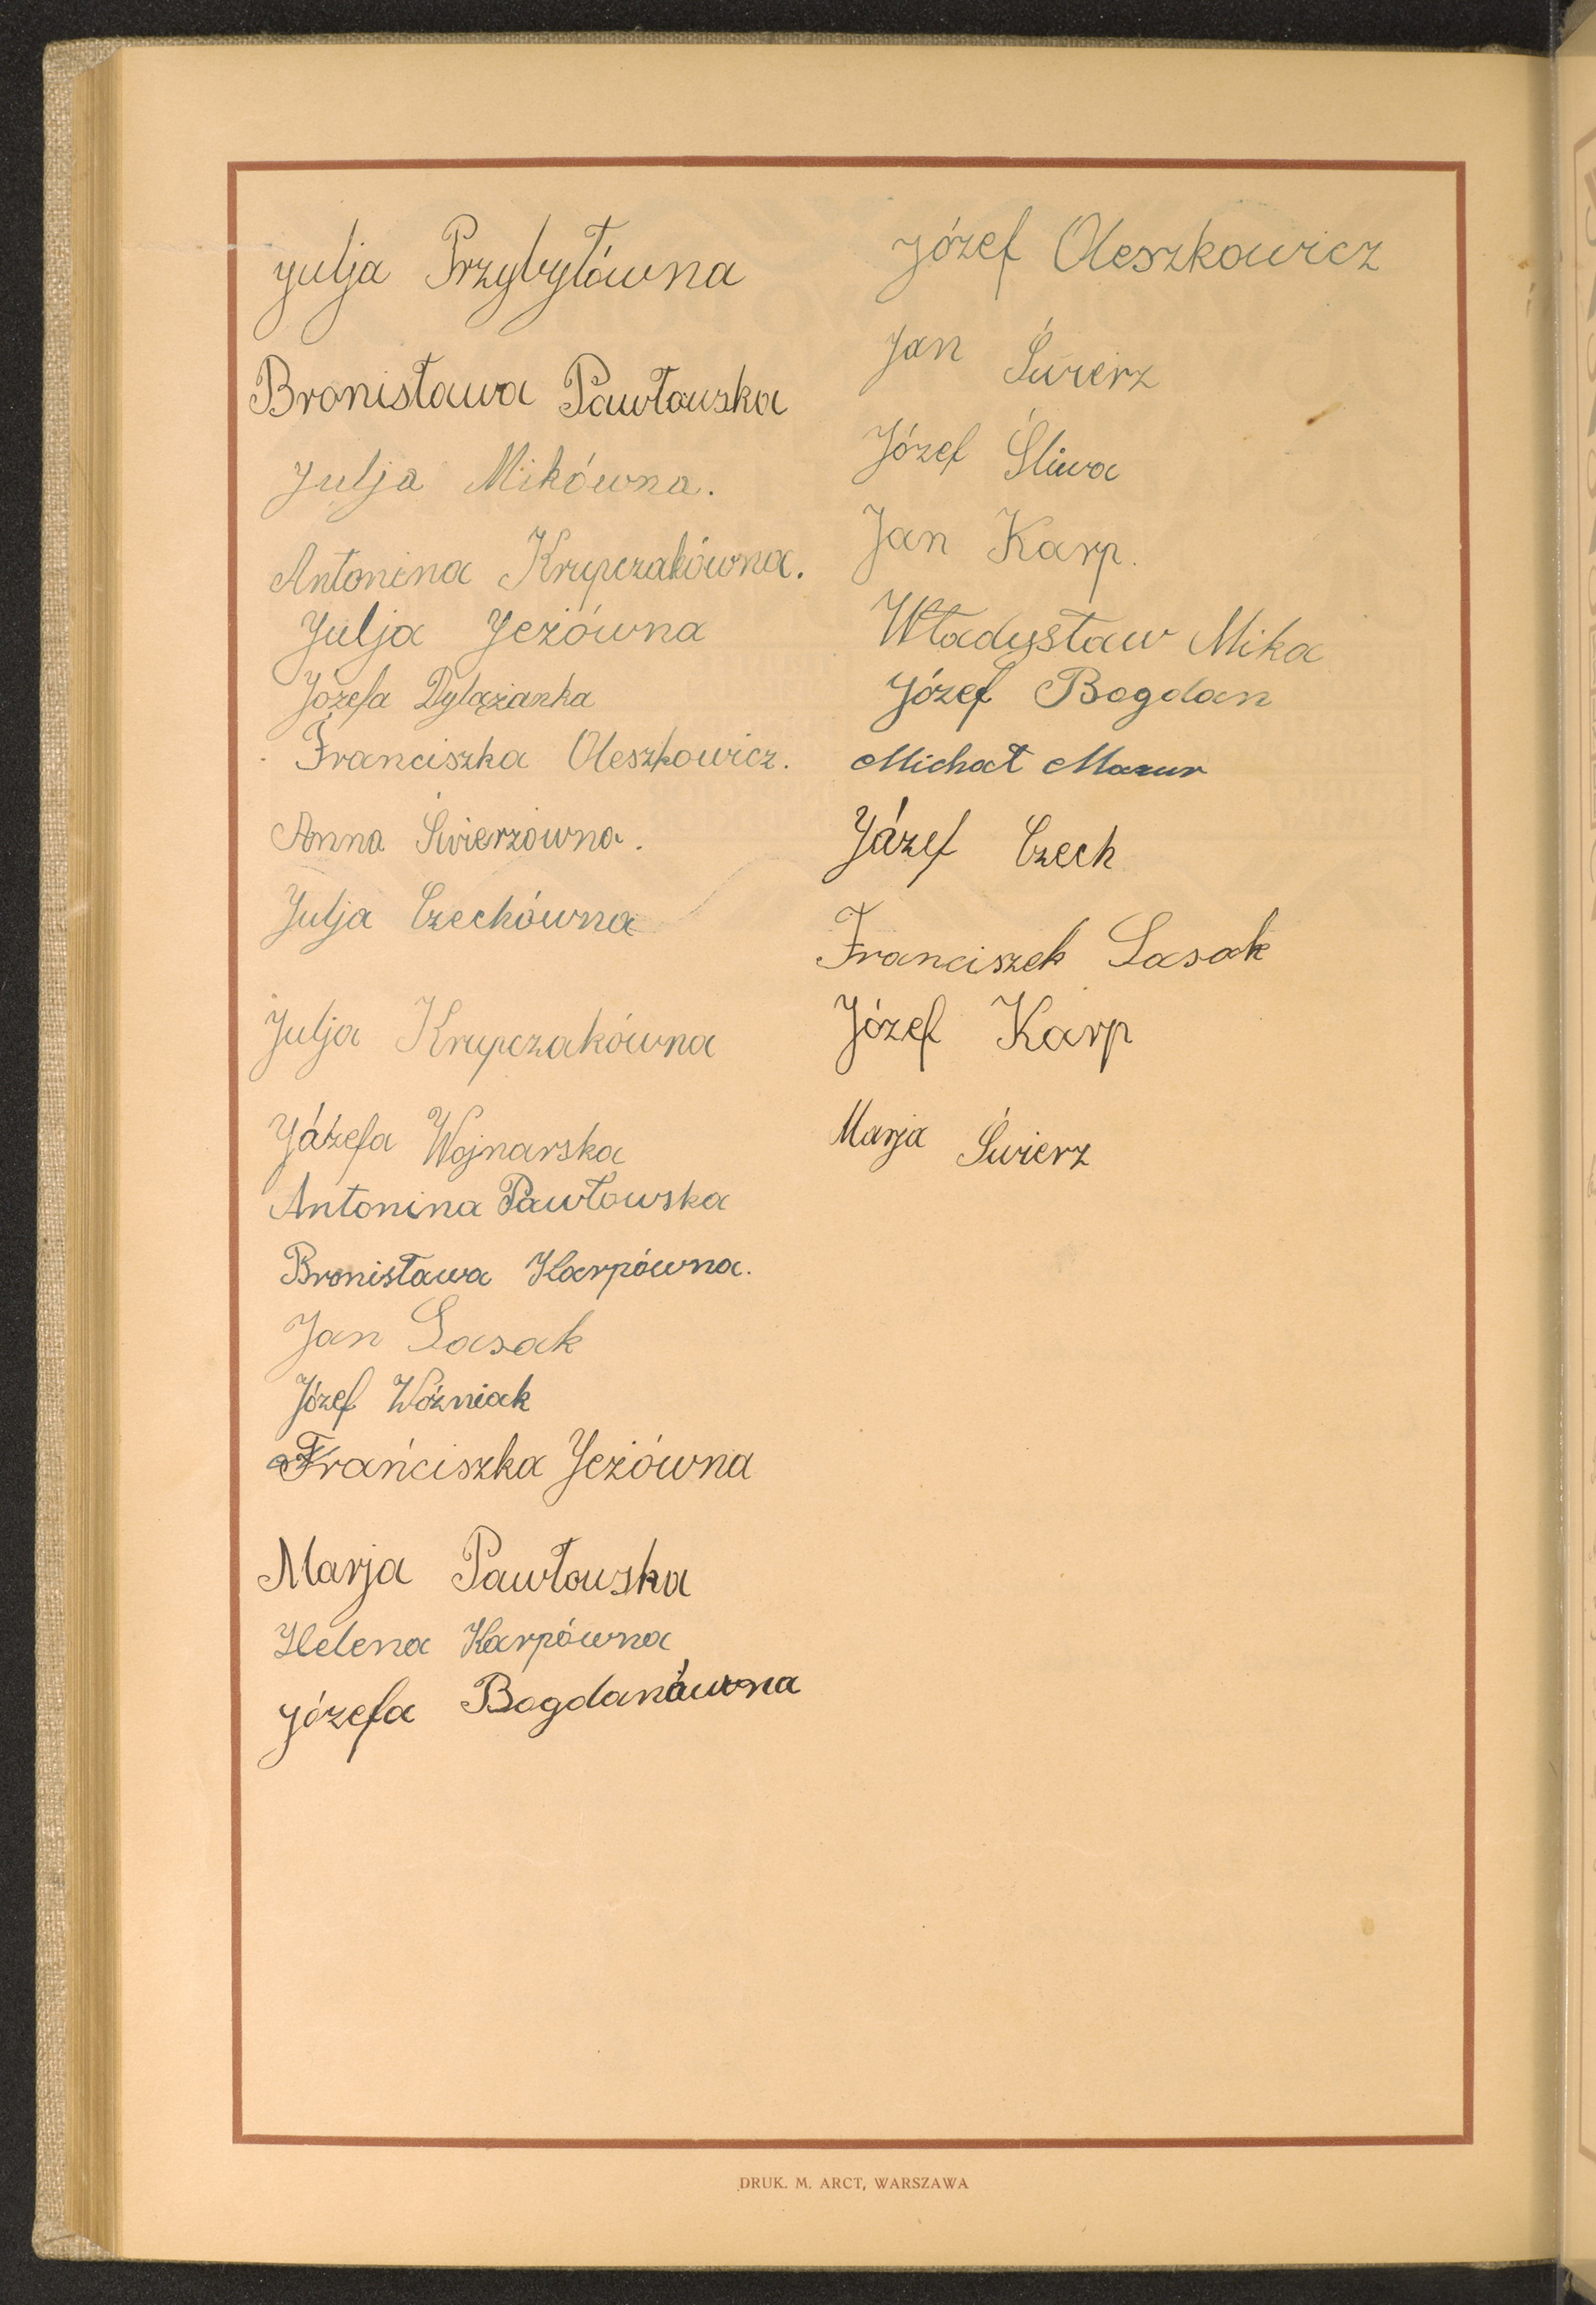 Julja Przybyłówna
Bronisława Pawłowska
Julja Mikówna.
Antonina Krupczakówna.
Julja Jeżówna
Józefa Dylążanka
Franciszka Oleszkowicz.
Anna Świerzówna.
Julja Czechówna
Julja Krupczakówna
Józefa Wojnarska
Antonina Pawłowska
Bronisława Karpówna.
Jan Lasak
Józef Woźniak
Franciszka Jeżówna
Marja Pawłowska
Helena Karpówna
Józefa Bogdanówna
Józef Oleszkowicz
Jan Świerz
Józef Śliwa
Jan Karp.
Władysław Mika
Józef Bogdan
Michał Mazur
Józef Czech
Franciszek Lasak
Józef Karp
Marja Świerz
DRUK. M. ARCT, WARSZAWA